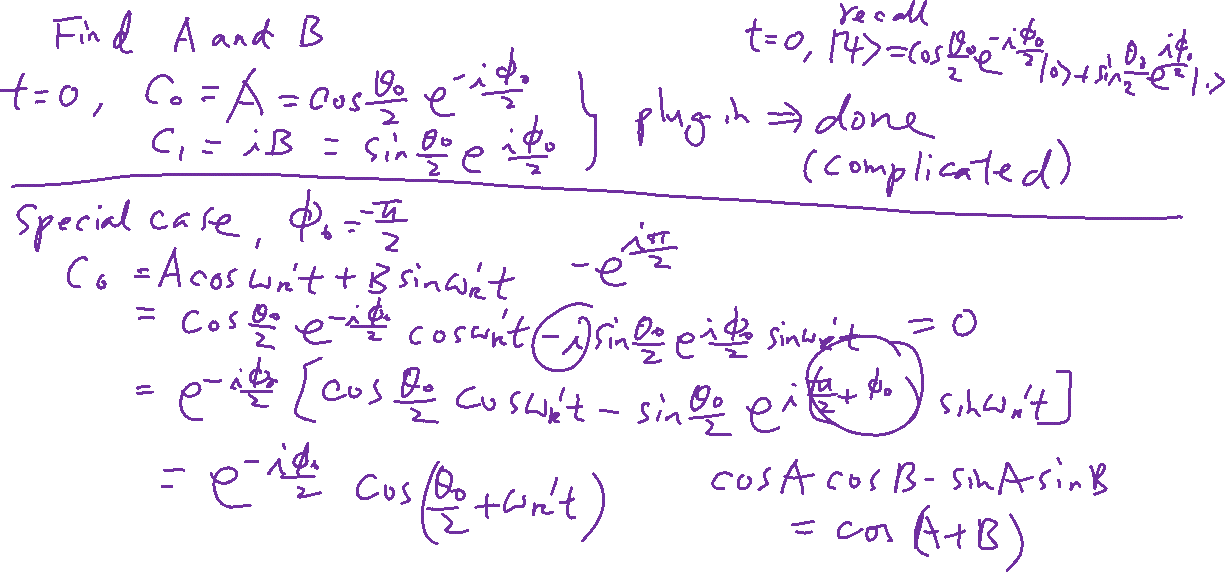 Find A and B
recall
t=0, |ψ> = cos θ₀/2 e^(-i φ₀/2) |0> + sin θ₀/2 e^(i φ₀/2) |1>
t=0, C₀ = A = cos θ₀/2 e^(-i φ₀/2)
C₁ = iB = sin θ₀/2 e^(i φ₀/2)
} plug in ⇒ done
(complicated)
Special case, φ₀ = -π/2
C₀ = A cos ω_R't + B sin ω_R't
- e^(iπ/2)
= cos θ₀/2 e^(-i φ₀/2) cos ω_R't - i sin θ₀/2 e^(i φ₀/2) sin ω_R't = 0
= e^(-i φ₀/2) [cos θ₀/2 cos ω_R't - sin θ₀/2 e^(i(π/2 + φ₀)) sin ω_R't]
= e^(-i φ₀/2) cos(θ₀/2 + ω_R't)
cos A cos B - sin A sin B
= cos (A+B)